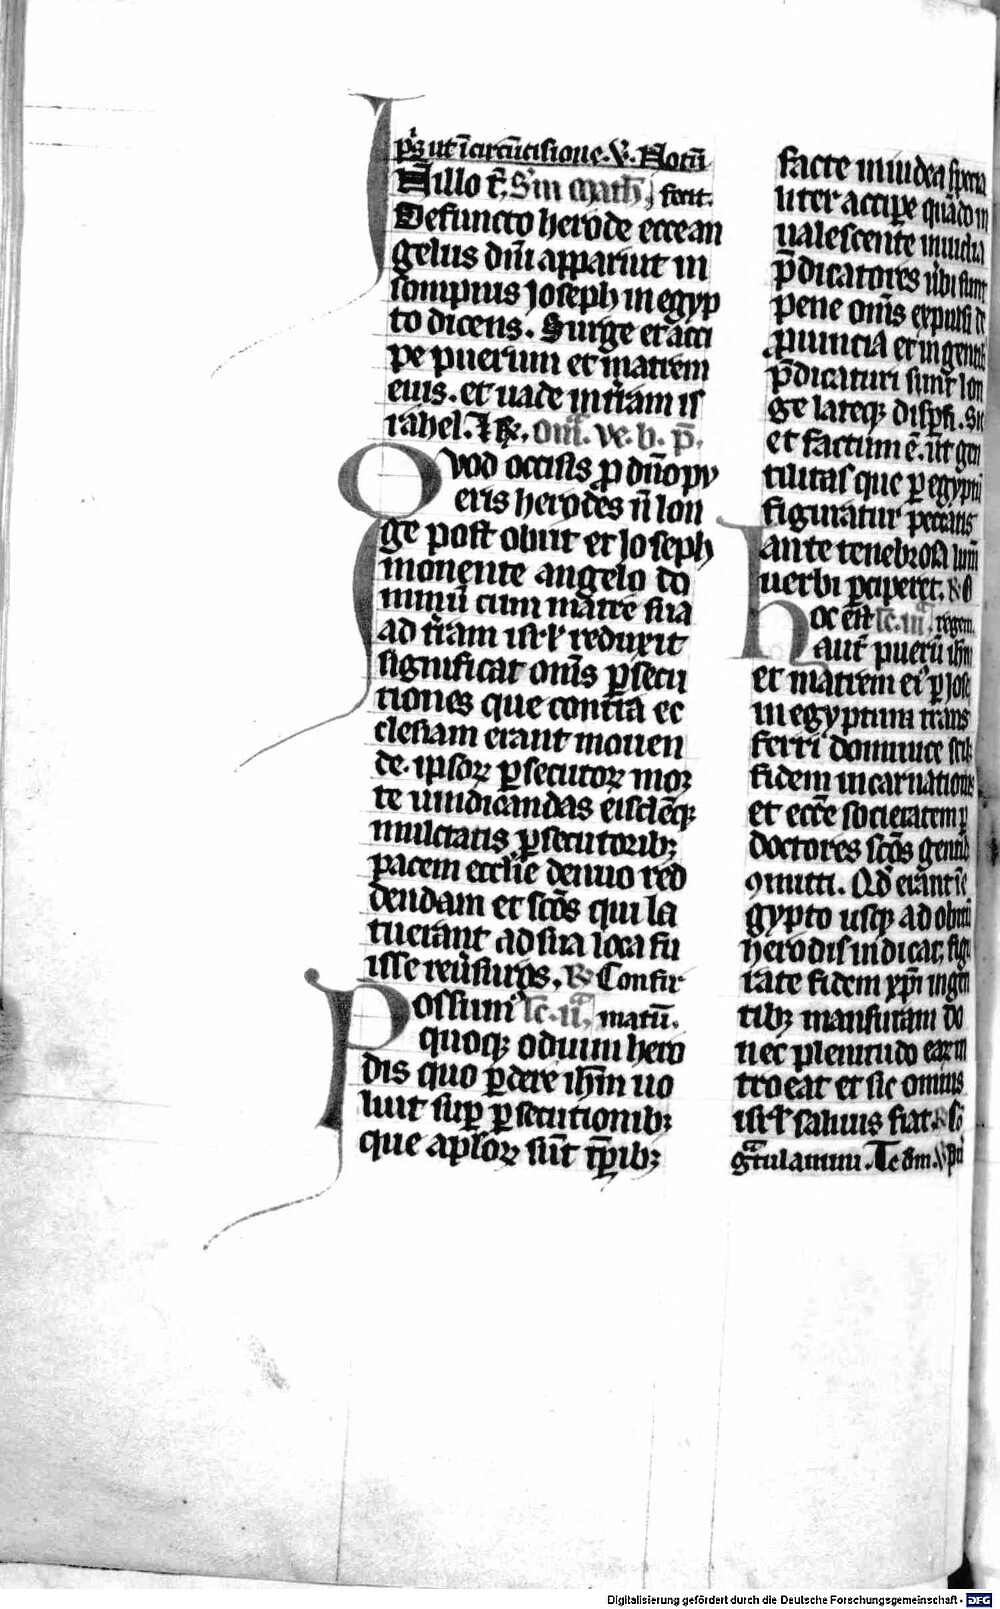 ps̄ ut ī circūcisione. V. Notū
In illo t̄. S'm Math̄ fecit.
Defuncto herode ecce an
gelus dn̄i apparuit in
sompnis Joseph in egyp
to dicens. Surge et acci
pe puerum et matrem
eius. et uade in tr̄am is
rahel. Et R. om̄. ve. b. p̄.
Quod occisis p̄ dn̄o pu
eris herodes n̄ lon
ge post obiit et Joseph
monente angelo do
minū cum matre sua
ad tr̄am isrl̄ reduxit
significat om̄s p̄secu
tiones que contra ec
clesiam erant mouen
de. ipsoꝝ p̄secutoꝝ mor
te uindicandas eisdēqꝫ
mulctatis p̄secutoribꝫ
pacem eccl'ie denuo red
dendam et scōs qui la
tuerant ad sua loca fu
isse reūsuros. R Confir
Possum' lc̄. ii.ᵃ matū.
quoqꝫ odium hero
dis quo p̄dere ih̄m uo
luit sup̄ p̄secutionibꝫ
que apl̄oꝝ sūt tp̄ribꝫ
facte in iudea specia
liter accipe quādo in
ualescente inuidia
p̄dicatores ūbi sunt
pene om̄s expulsi de
ꝓuincia et in gentib
p̄dicaturi sunt lon
ge lateqꝫ disp̄si. Sic
et factum ē. ūt gen
tilitas que p̄ egyptū
figuratur peccatis
ante tenebrosa lum̄
uerbi p̄ciperet. R O
Hoc est lc̄. iii.ᵃ regem.
aut̄ puerū ih̄m
et matrem ei' p̄ Jose
in egyptum trans
ferri dominice scil
fidem incarnationis
et eccl'e societatem p̄
doctores scōs gentib
ꝯmitti. Qd̄ erant ī e
gypto usqꝫ ad obitū
herodis indicat, figu
rate fidem xp̄i in gen
tibꝫ mansuram do
nec plenitudo eaꝝ in
troeat et sic omnis
isrl̄ saluus fiat. R Cō
gͣtulamini. Te dm̄. V. Pri